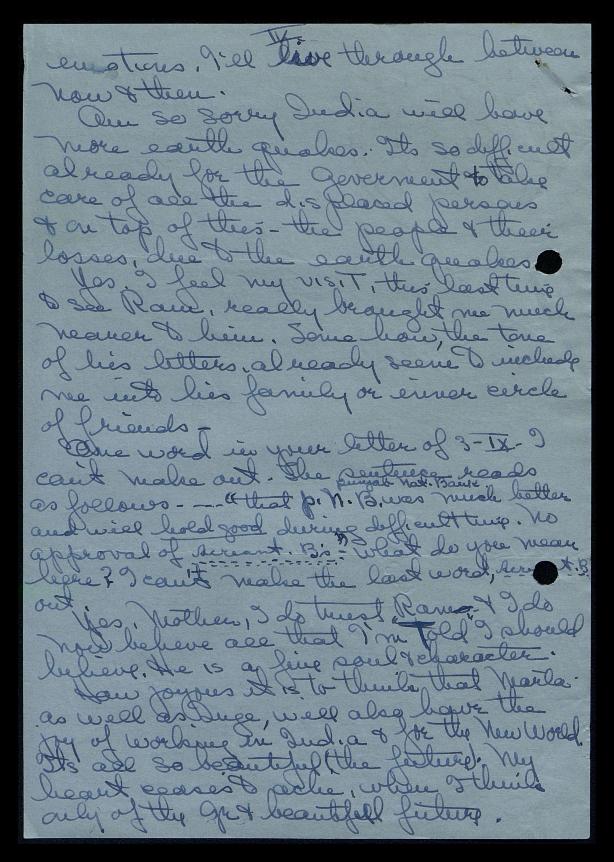 IV.
emotions, I'll live through between
now & then.
Am so sorry India will have
more earth quakes. Its so difficult
already for the Goverment to take
care of all the displaced persons
& on top of this - the people & their
losses, due to the earth quakes.
Yes, I feel my visit, this last time
to see Ram, really brought me much
nearer to him. Some how, the tone
of his letters, already seems to include
me into his family or inner circle
of friends -
One word in your letter of 3-IX- I
can't make out. The sentence reads
punjab Nat. Bank
as follows - --- "that P.N.B. was much better
and will hold good during difficult time. No
approval of servant. B's" - what do you mean
here? I can't make the last word, servant. B.
out.
Yes, Mother, I do trust Rama & I do
now believe all that I'm told I should
believe. He is a fine soul & character.
How joyous it is to think that Marla
as well as Inge, will also have the
joy of working in India & for the New World.
Its all so beautiful, (the future). My
heart ceases to ache, when I think
only of the gr't beautifull future.